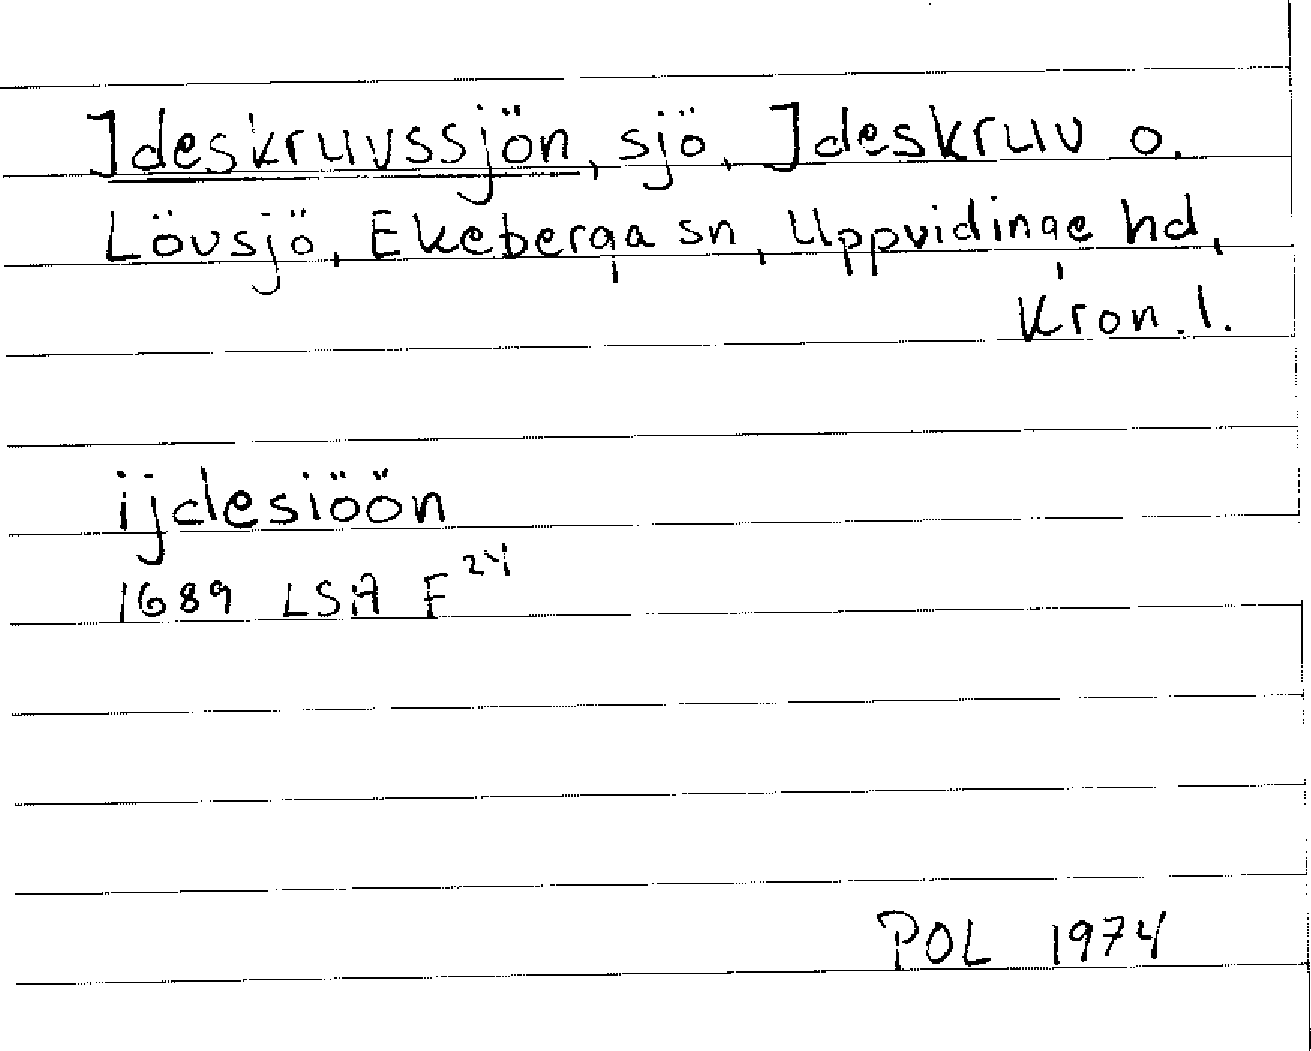 Ideskruvssjön, sjö, Ideskruv o.
Lövsjö, Ekeberga sn, Uppvidinge hd,
Kron. l.
ijdesiöön
1689 LSA F 24
POL 1974